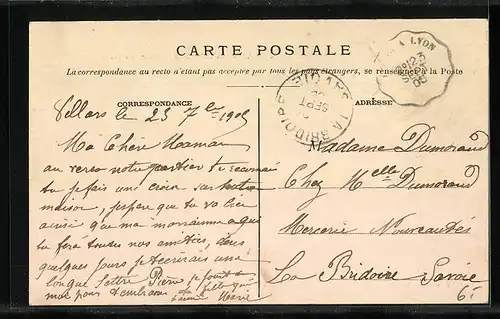 A LYON
23
SEPT
05
CARTE POSTALE
La correspondance au recto n'étant pas acceptée par tous les pays étrangers, se renseigner à la Poste
CORRESPONDANCE
ADRESSE
LA BRIDOIRE
SEPT
Villars le 23 7bre 1905
Ma Chère Maman
au verso notre quartier tu reconnais
tu y fais une croix sur
maison, que tu va bien
aussi que ma marraine a qui
tu fera toutes nos amitiés, dans
quelques jours
longue lettre Pierre, se joint a
moi pour t'embrasser ta fille qui
t'aime Marie
Madame Dumorand
Chez Melle Dumorand
Mercerie Nouveautés
La Bridoire Savoie